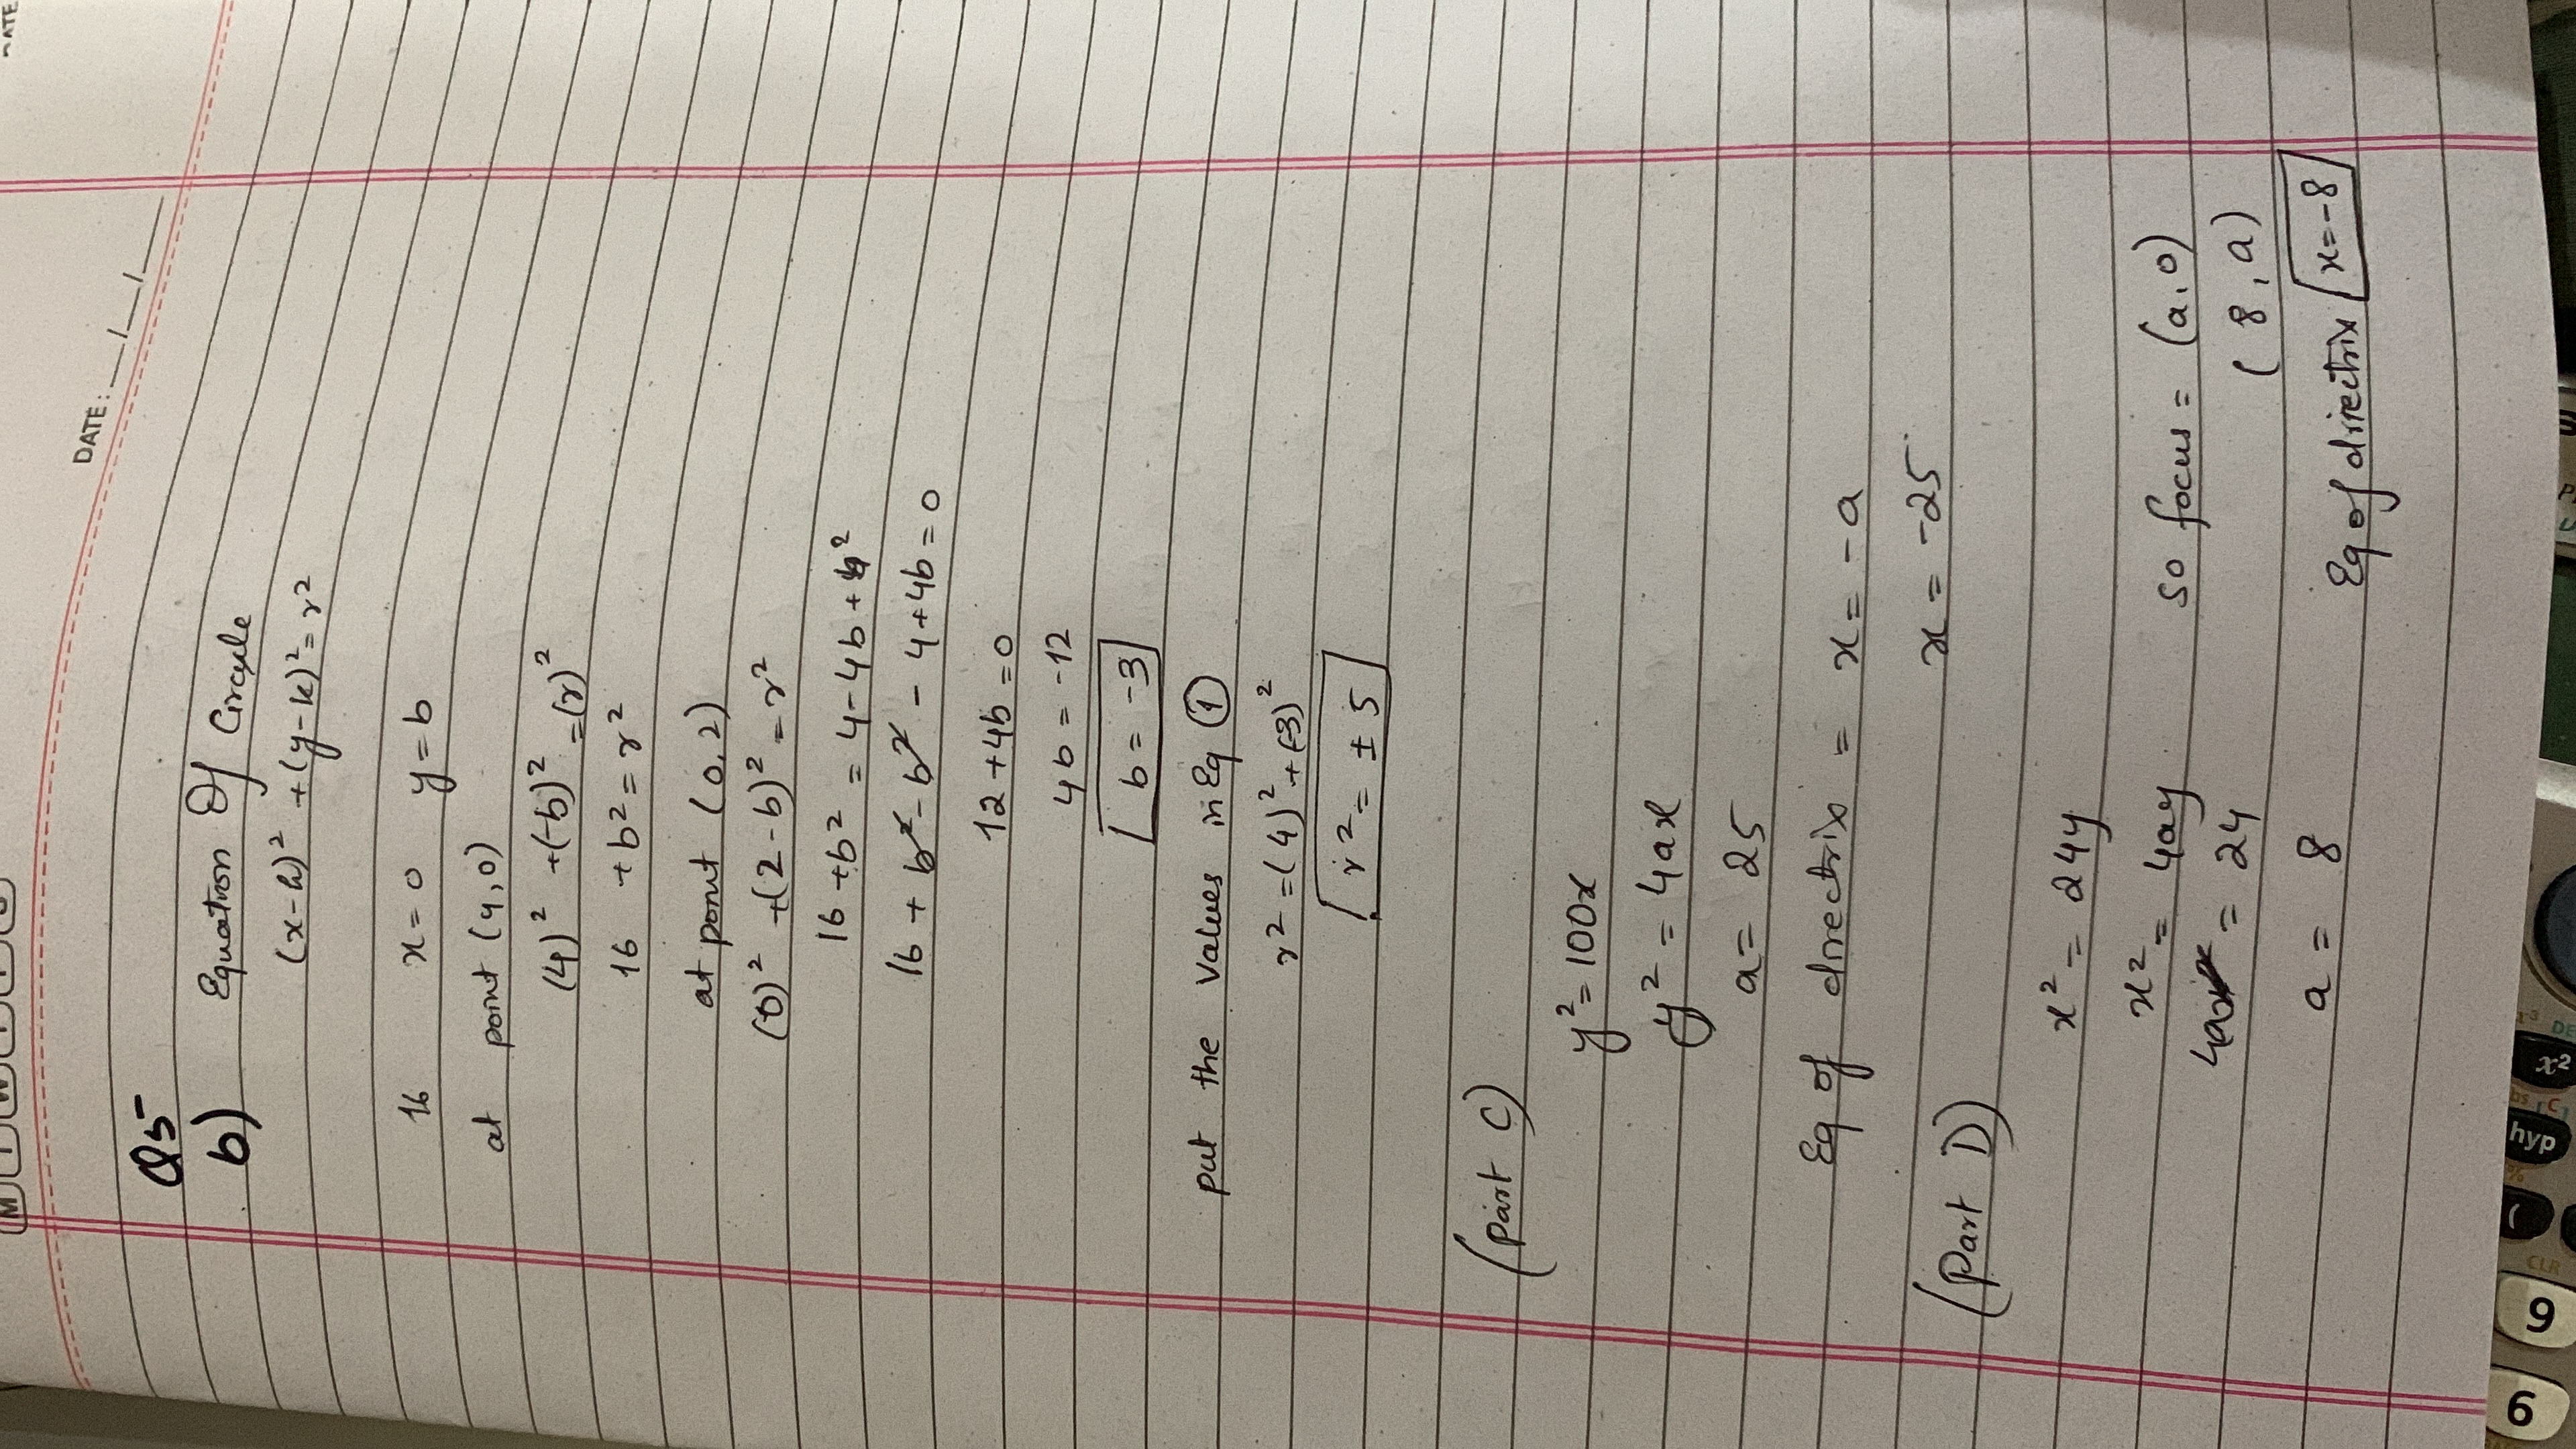 M T W T F S
DATE
DATE: __/__/____
Q5
b) Equation Of Circle
(x-h)² + (y-k)² = r²
16 x = 0 y = b
at point (4,0)
(4)² + (-b)² = (r)²
16 + b² = r²
at point (0,2)
(0)² + (2-b)² = r²
16 + b² = 4 - 4b + b²
16 + b² - b² - 4 + 4b = 0
12 + 4b = 0
4b = -12
b = -3
put the values in Eq ①
r² = (4)² + (-3)²
r² = ± 5
(Part C)
y² = 100x
y² = 4ax
a = 25
Eq of directrix = x = -a
x = -25
(Part D)
x² = 24y
x² = 4ay
4a = 24
a = 8
so focus = (a,0)
(8,a)
Eq of directrix x = -8
6
9
(
hyp
x²